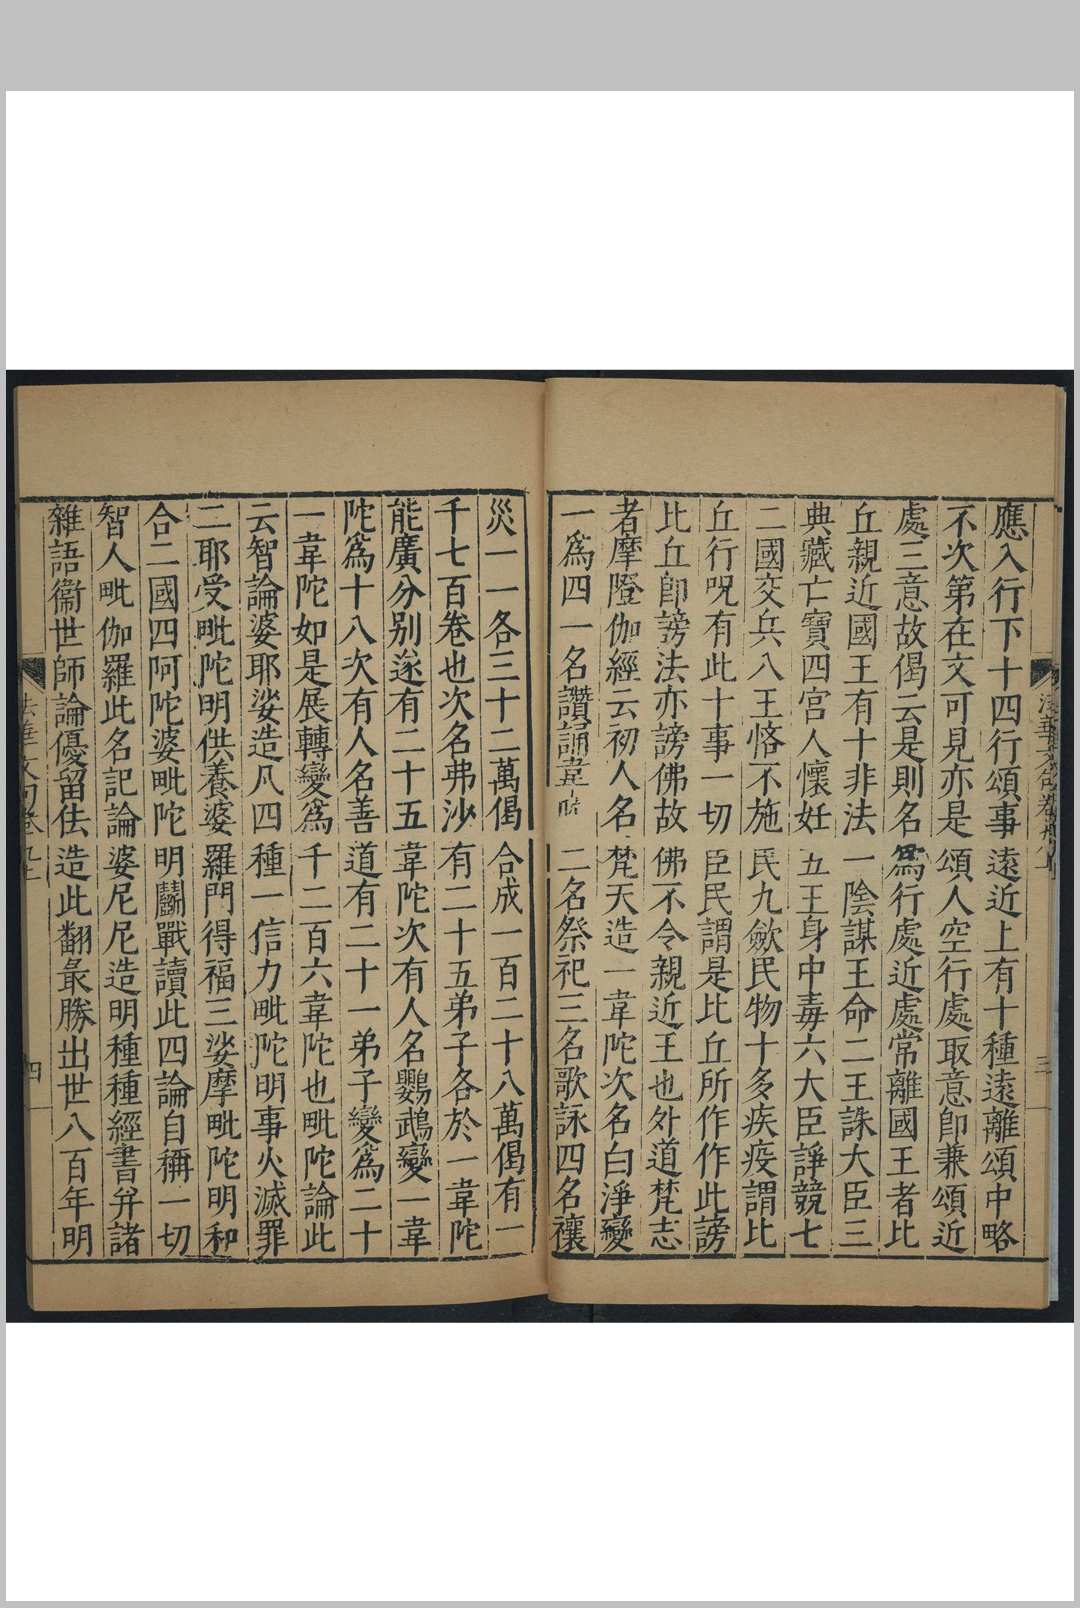 應入行下十四行頌事遠近上有十種遠離頌中略
不次第在文可見亦是頌人空行處取意即兼頌近
處三意故偈云是則名為行處近處常離國王者比
丘親近國王有十非法一陰謀王命二王誅大臣三
典藏亡寶四宮人懷妊五王身中毒六大臣諍競七
二國交兵八王悋不施民九歛民物十多疾疫謂比
丘行呪有此十事一切臣民謂是比丘所作作此謗
比丘卽謗法亦謗佛故佛不令親近王也外道梵志
者摩隥伽經云初人名梵天造一韋陀次名白淨變
一爲四一名讚誦韋陀二名祭祀三名歌詠四名禳
災一一各三十二萬偈合成一百二十八萬偈有一
千七百卷也次名弗沙有二十五弟子各於一韋陀
能廣分別遂有二十五韋陀次有人名鸚鵡變一韋
陀爲十八次有人名善道有二十一弟子變爲二十
一韋陀如是展轉變爲千二百六韋陀也毗陀論此
云智論婆耶娑造凡四種一信力毗陀明事火滅罪
二耶受毗陀明供養婆羅門得福三娑摩毗陀明和
合二國四阿陀婆毗陀明鬬戰讀此四論自稱一切
智人毗伽羅此名記論婆尼尼造明種種經書并諸
雜語衞世師論優留佉造此翻最勝出世八百年明
四